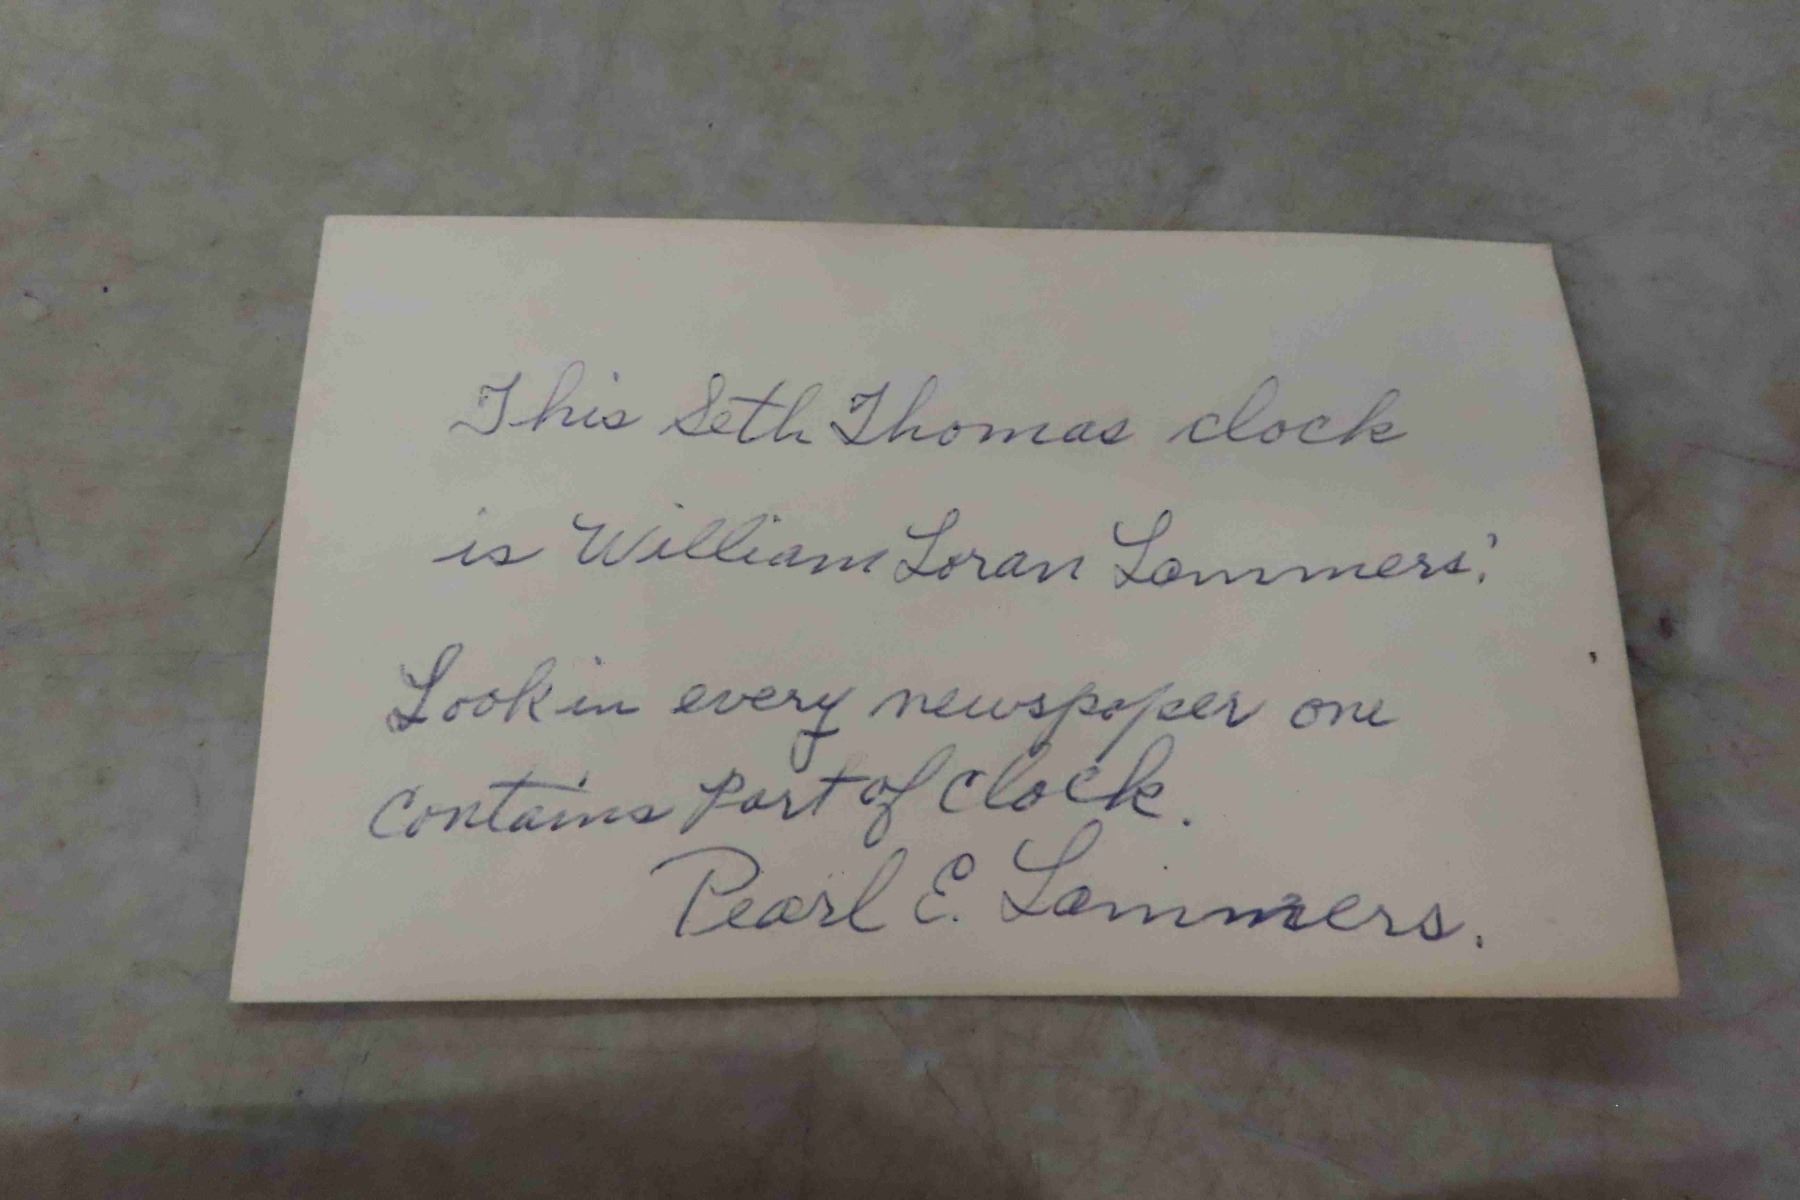 This Seth Thomas clock
is William Loran Lammers'.
Look in every newspaper one
contains part of clock.
Pearl E. Lammers.